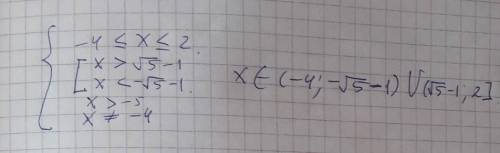 -4 ≤ x ≤ 2.
x > √5-1
x < -√5-1.
x > -5
x ≠ -4
x ∈ (-4; -√5-1) ⋃ (√5-1; 2]